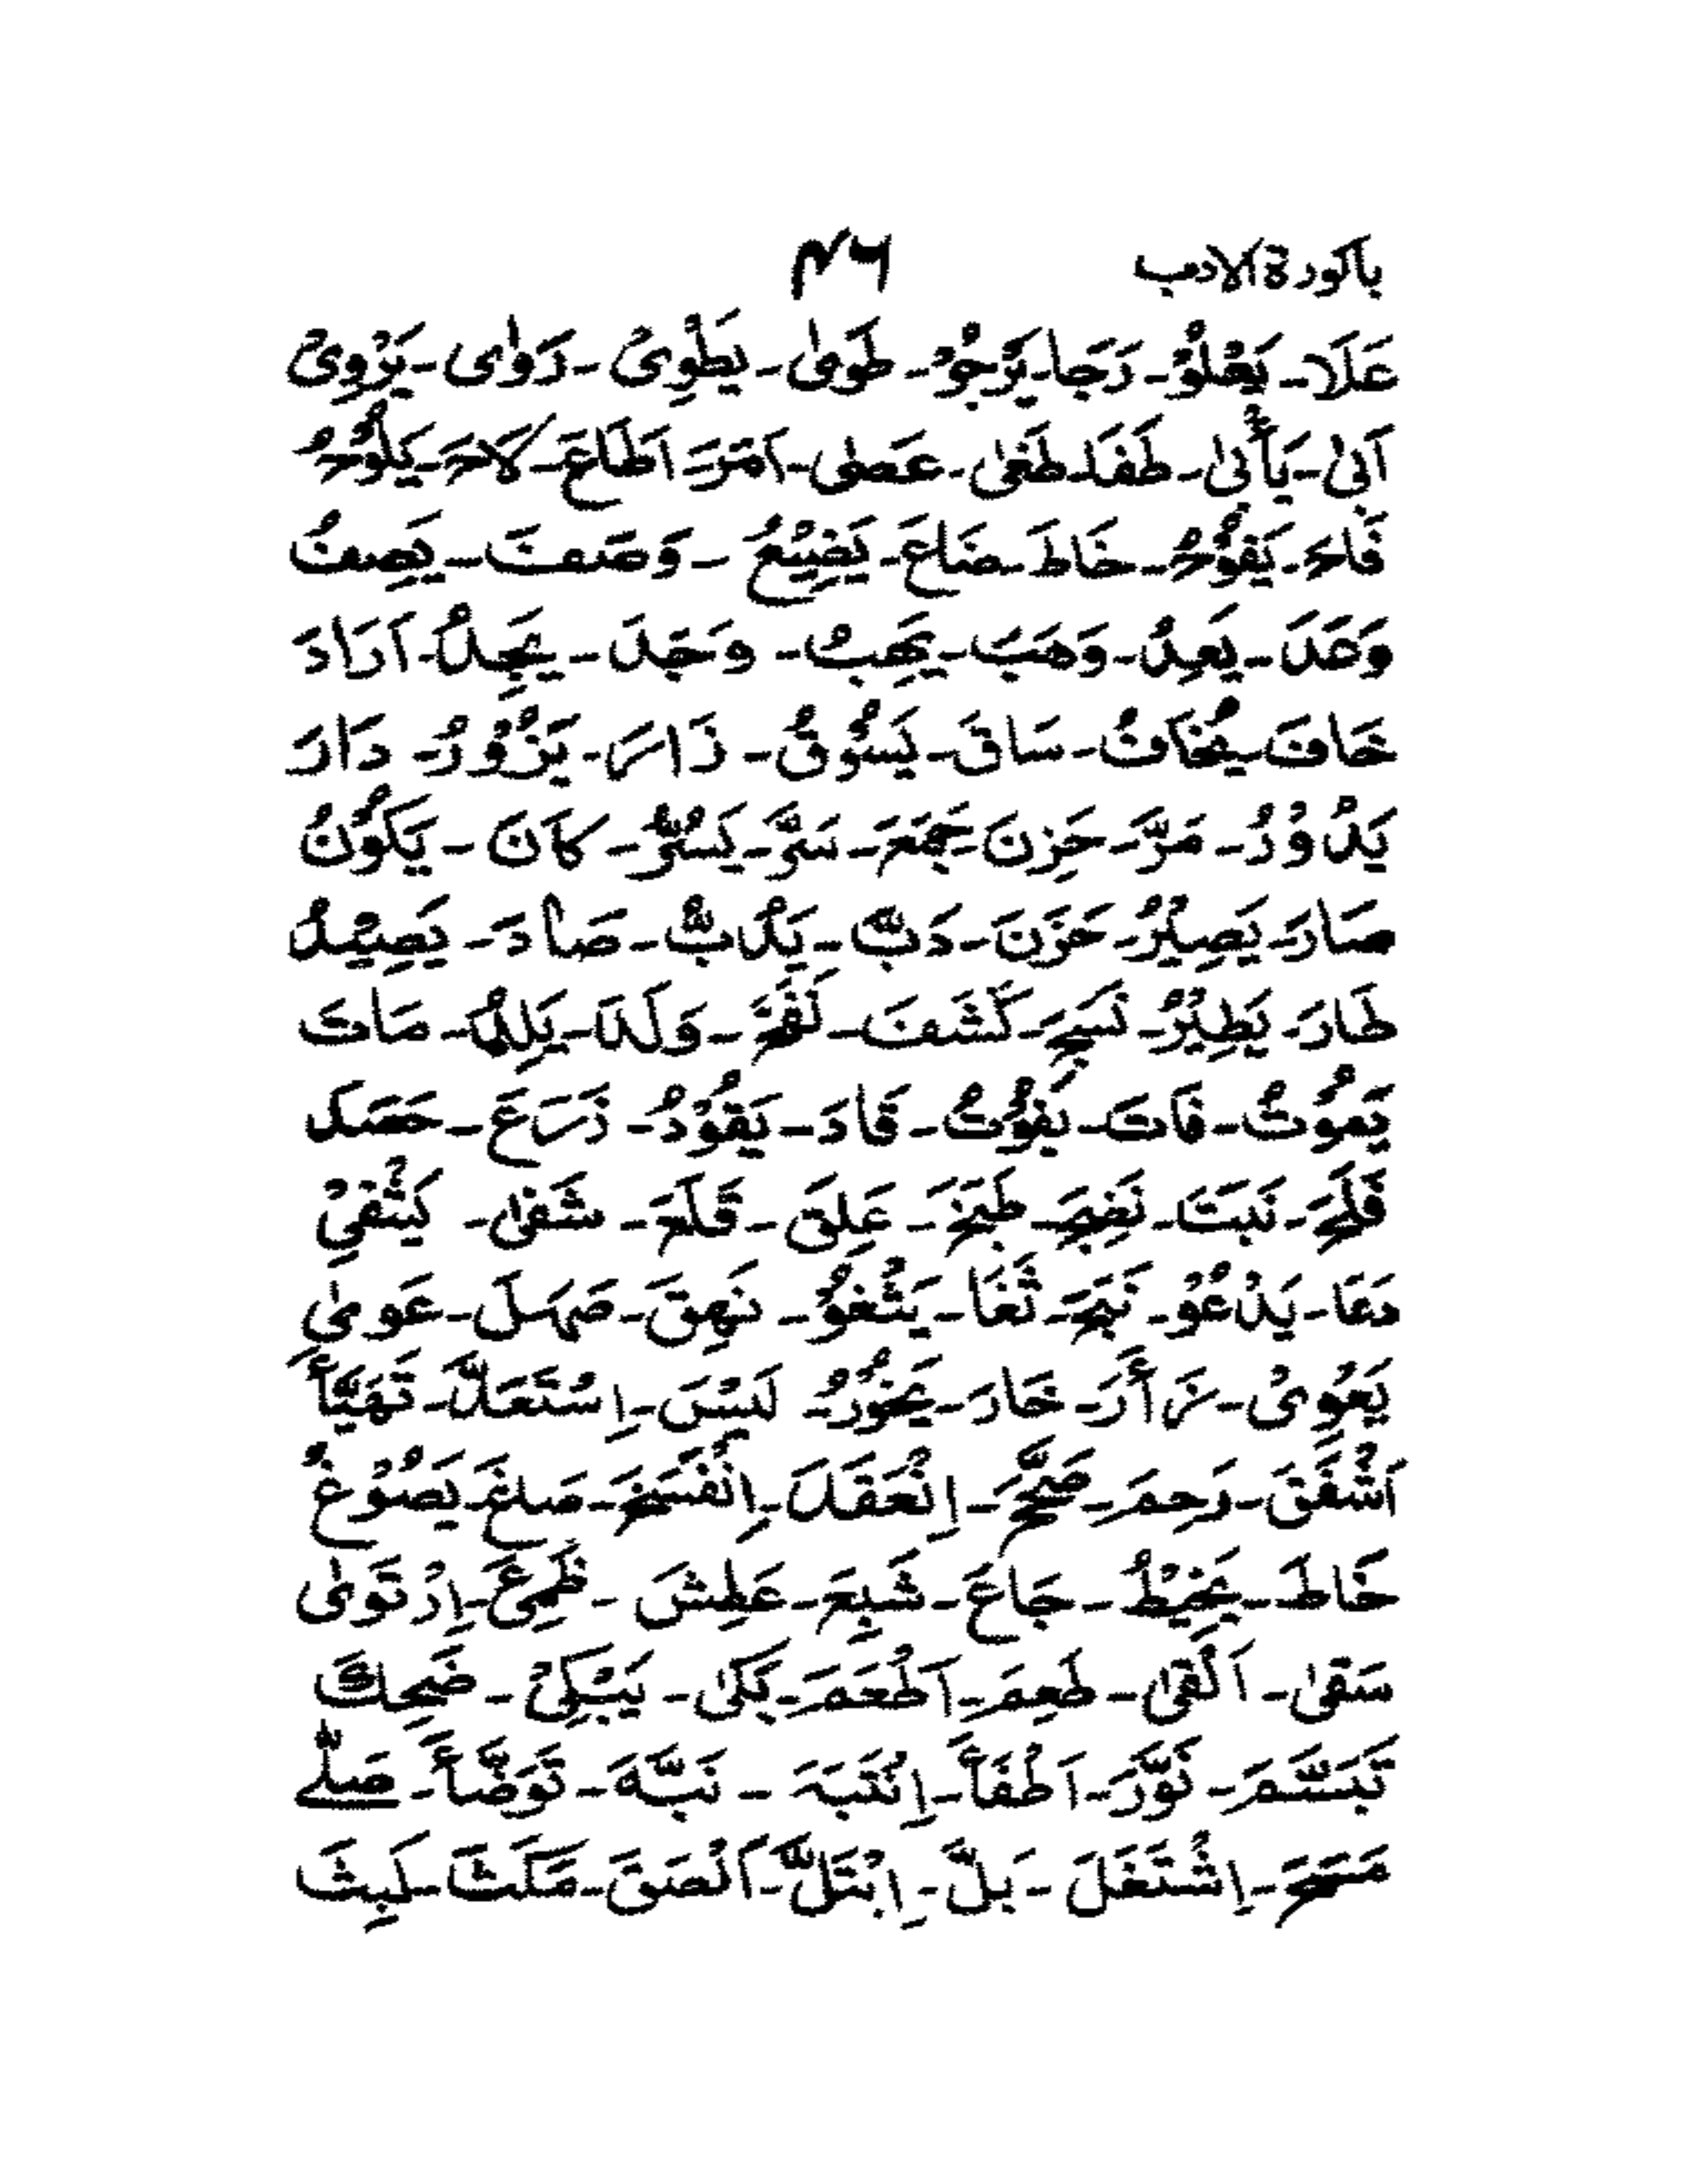 باكورة الادب ۶۴
عَلَا - يَعْلُوْ - رَجَا - يَرْجُوْ - طَوىٰ - يَطْوِىْ - رَوٰى - يَرْوِىْ
اَبىٰ - يَأْبىٰ - طَفَا - طَغىٰ - عَصىٰ - اَمَرَ - اَطَاعَ - لَاحَ - يَلُوْحُ
فَاحَ - يَفُوْحُ - خَاطَ - ضَاعَ - يَضِيْعُ - وَصَفَ - يَصِفُ
وَعَدَ - يَعِدُ - وَهَبَ - يَهِبُ - وَجَدَ - يَجِدُ - اَرَادَ
خَافَ - يَخَافُ - سَاقَ - يَسُوْقُ - زَارَ - يَزُوْرُ - دَارَ
يَدُوْرُ - مَرَّ - حَزِنَ - جَمَعَ - سَرَّ - يَسُرُّ - كَانَ - يَكُوْنُ
صَارَ - يَصِيْرُ - حَزَنَ - دَبَّ - يَدُبُّ - صَادَ - يَصِيْدُ
طَارَ - يَطِيْرُ - نَسَجَ - كَشَفَ - لَقَّحَ - وَلَدَ - يَلِدُ - مَاتَ
يَمُوْتُ - فَاتَ - يَفُوْتُ - قَادَ - يَقُوْدُ - زَرَعَ - حَصَدَ
فَلَحَ - نَبَتَ - نَضِجَ - طَبَخَ - عَلِقَ - قَلَعَ - شَفىٰ - يَشْفِىْ
دَعَا - يَدْعُوْ - نَبَحَ - ثَغَا - يَثْغُوْ - نَهِقَ - صَهَلَ - عَوىٰ
يَعْوِىْ - زَأَرَ - خَارَ - يَخُوْرُ - لَبِسَ - اِسْتَعَدَّ - تَهَيَّأَ
اَشْفَقَ - رَحِمَ - صَحَّ - اِنْعَقَدَ - اِنْفَسَخَ - صَاغَ - يَصُوْغُ
خَاطَ - يَخِيْطُ - جَاعَ - شَبِعَ - عَطِشَ - ظَمِئَ - اِرْتَوىٰ
سَقىٰ - اَلْقىٰ - طَعِمَ - اَطْعَمَ - بَكىٰ - يَبْكِىْ - ضَحِكَ
تَبَسَّمَ - نَوَّرَ - اَطْفَأَ - اِنْتَبَهَ - نَبَّهَ - تَوَضَّأَ - صَلّٰى
مَسَحَ - اِشْتَغَلَ - بَلَّ - اِبْتَلَّ - اَلْصَقَ - مَكَثَ - لَبِثَ